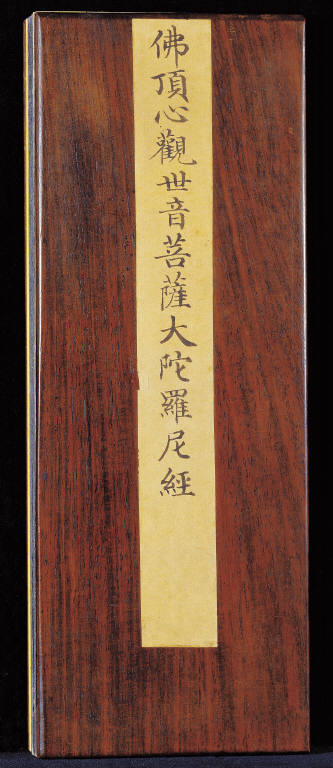 佛頂心觀世音菩薩大陀羅尼經